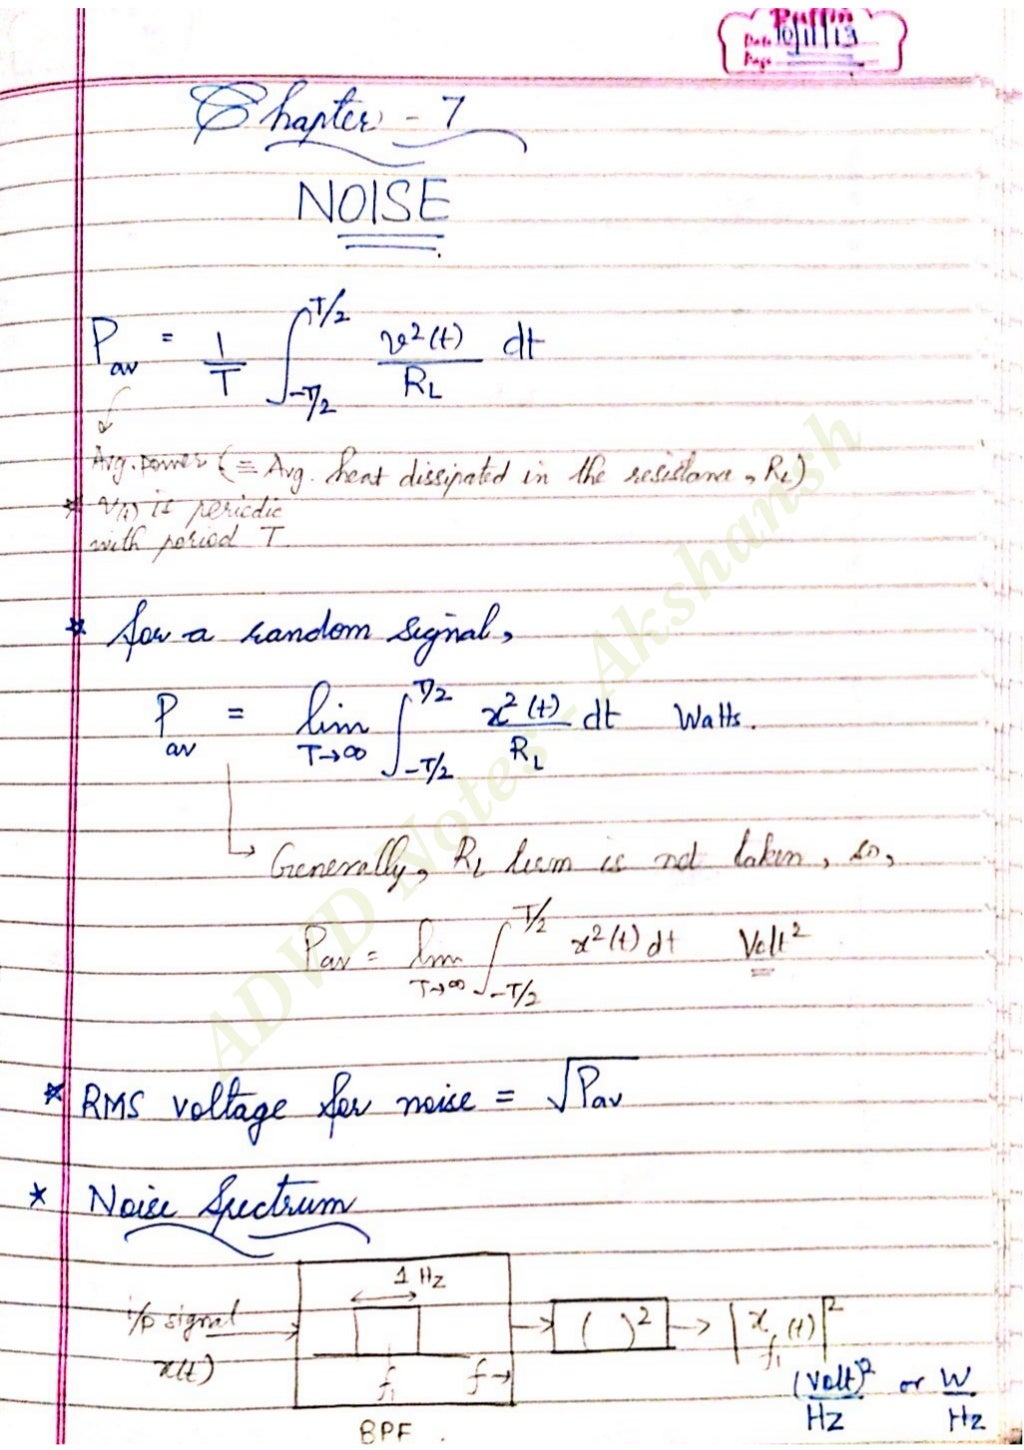 Puffin
Date 10/11/19
Page
Chapter - 7
NOISE
P_av = 1/T ∫_{-T/2}^{T/2} v²(t)/R_L dt
Avg. power (= Avg. heat dissipated in the resistance, R_L)
* V(t) is periodic
with period T.
* for a random signal,
P_av = lim_{T→∞} ∫_{-T/2}^{T/2} x²(t)/R_L dt Watts.
↳ Generally, R_L term is not taken, so,
P_av = lim_{T→∞} ∫_{-T/2}^{T/2} x²(t) dt Volt²
* RMS voltage for noise = √P_av
* Noise Spectrum
1 Hz
i/p signal → → ( )² → |x_{f₁}(t)|²
x(t)
f₁ f→
(Volt)²/Hz or W/Hz
BPF.
ADVD Notes - Akshansh